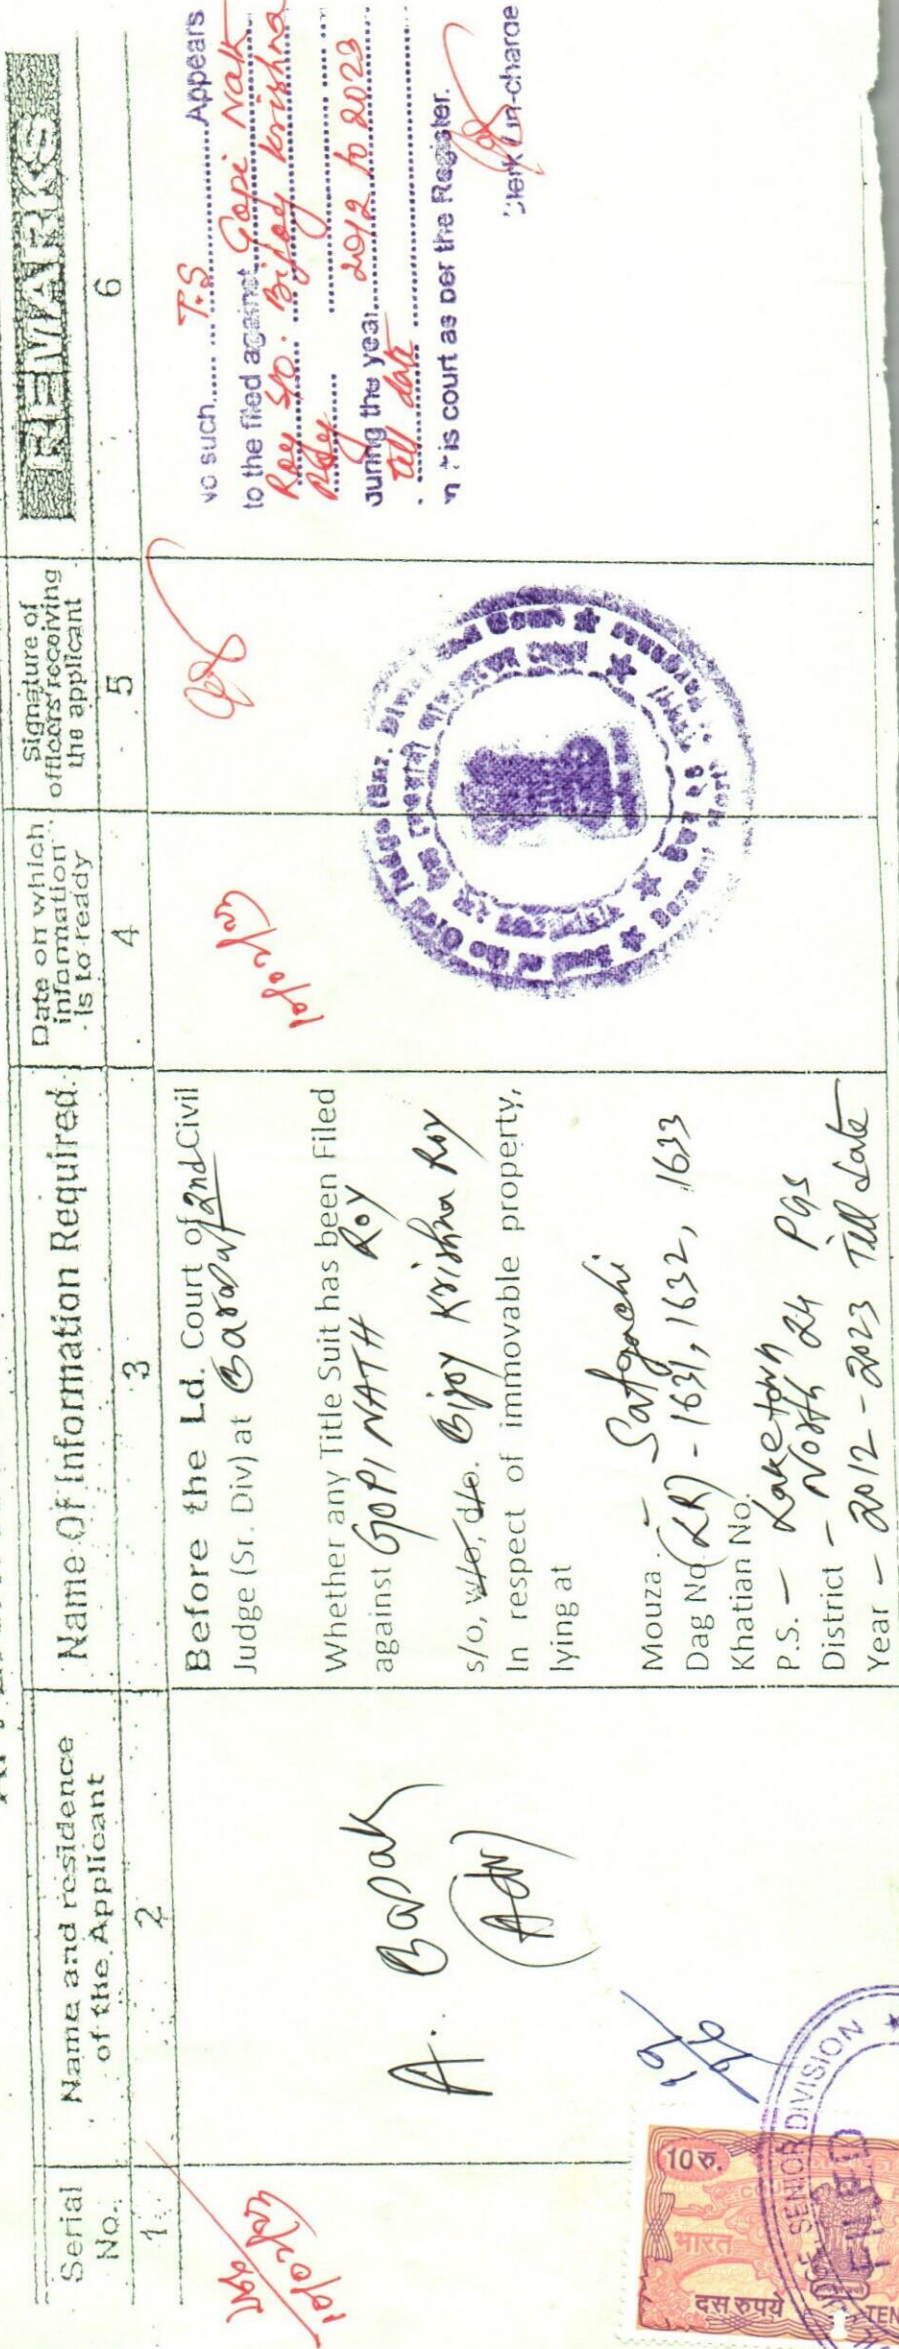 Serial
No.
Name and residence
of the Applicant
Name Of Information Required.
Date on which
information
Is to ready
Signature of
officers receiving
the applicant
REMARKS
1
2
3
4
5
6
A. Basak
(Adv)
Before the Ld. Court of 2nd Civil
Judge (Sr. Div) at Barasat
Whether any Title Suit has been Filed
against GOPI NATH ROY
s/o, w/o, d/o. Bijoy Krishna Roy
In respect of immovable property,
lying at
Mouza. - Satgachi
Dag No. (LR) - 1631, 1632, 1633
Khatian No.
P.S. - Laketown
District - North 24 PGS
Year - 2012 - 2023 Till date
No such...... T.S ......Appears
to the filed against Gopi Nath
Roy S/O. Bijoy Krishna
Roy
during the year 2012 to 2023
till date
in this court as per the Register.
Clerk in-charge
Seal of the Civil Judge (Snr. Div
Court
10 रु.
भारत
दस रुपये
TEN
SENIOR DIVISION
FILED